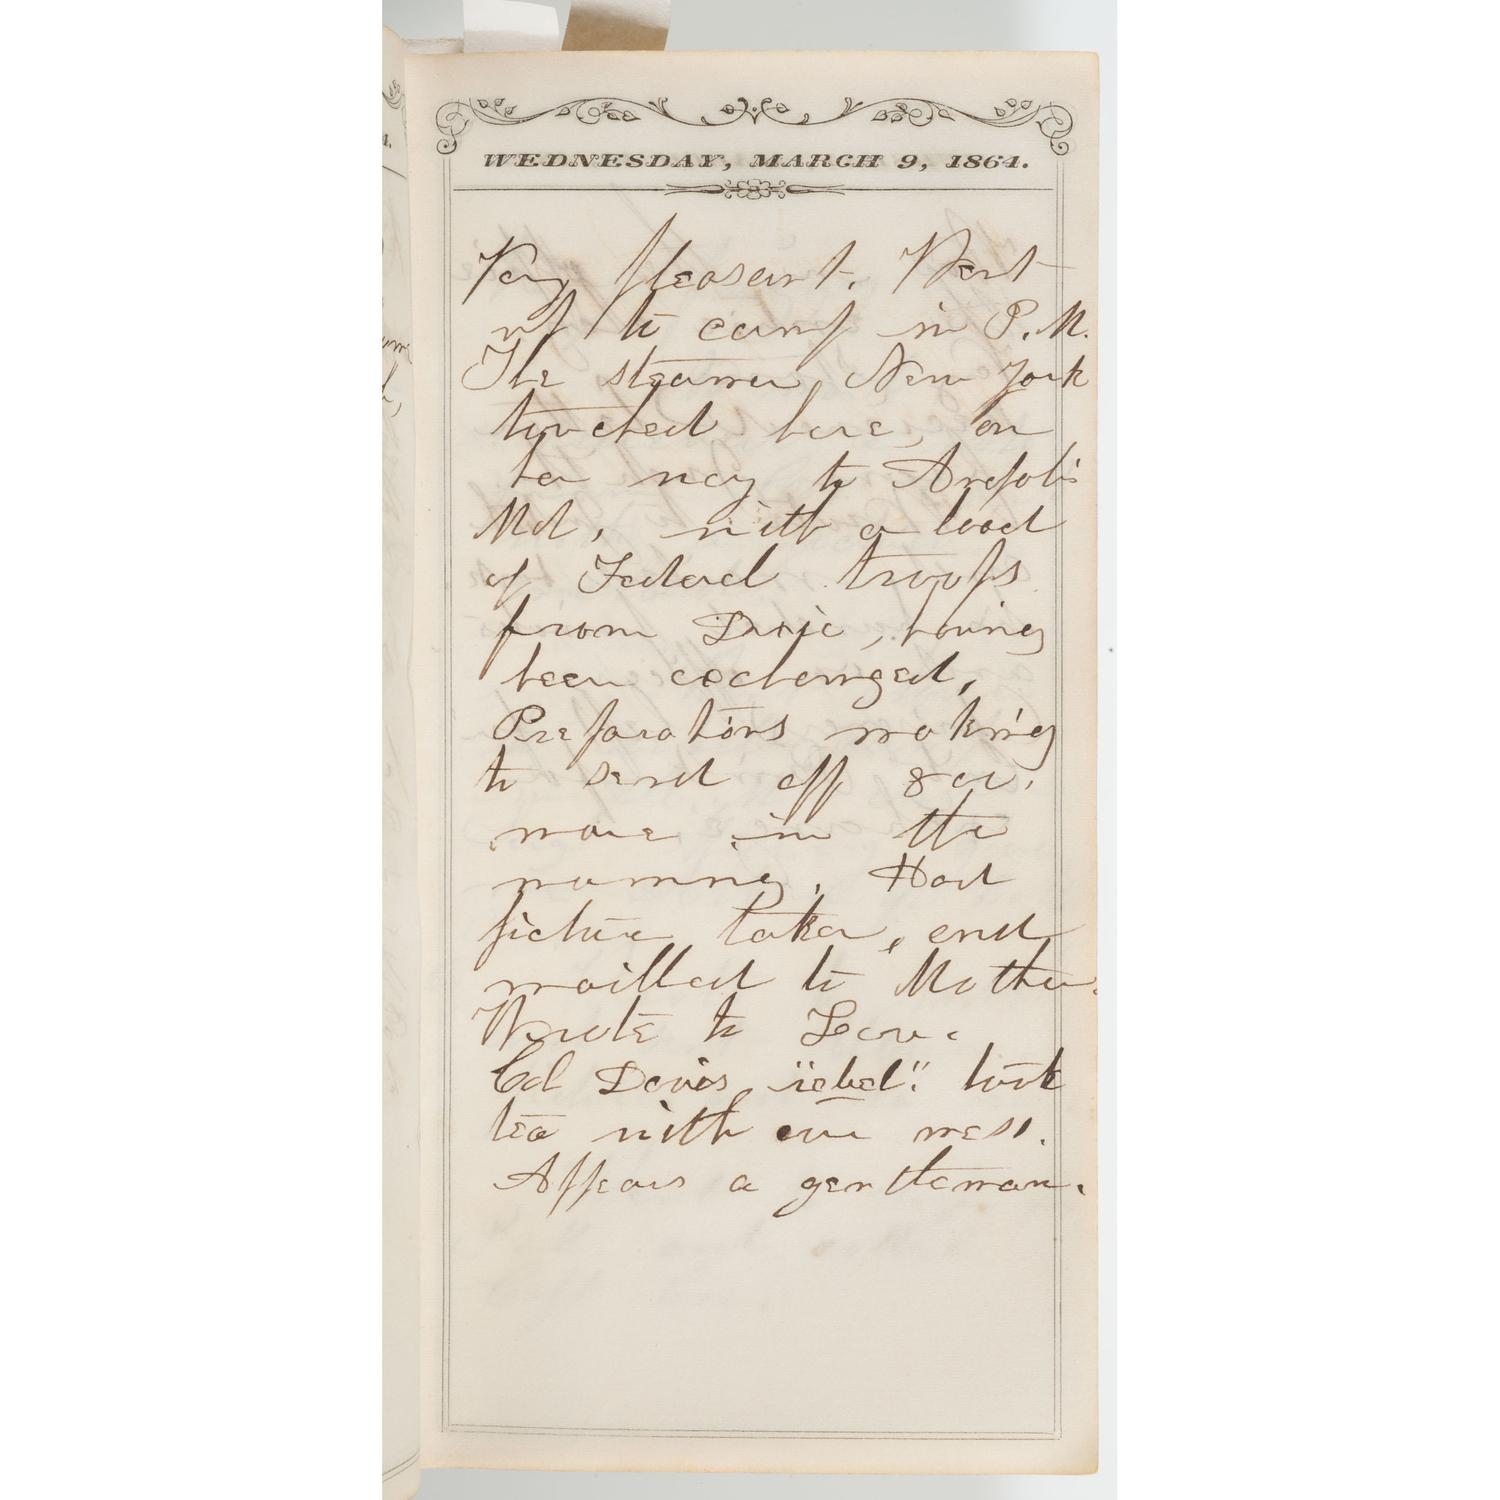 WEDNESDAY, MARCH 9, 1864.
Very pleasant. Went
up to camp in P.M.
The steamer, New York
touched here, on
her way to Anapolis
Md, with a load
of Federal troops
from Dixie, having
been exchanged,
Preparations making
to send off 800,
more in the
morning. Had
picture taken, and
mailled to Mother.
Wrote to
Col Davis "rebel". took
tea with our mess.
Appears a gentleman.